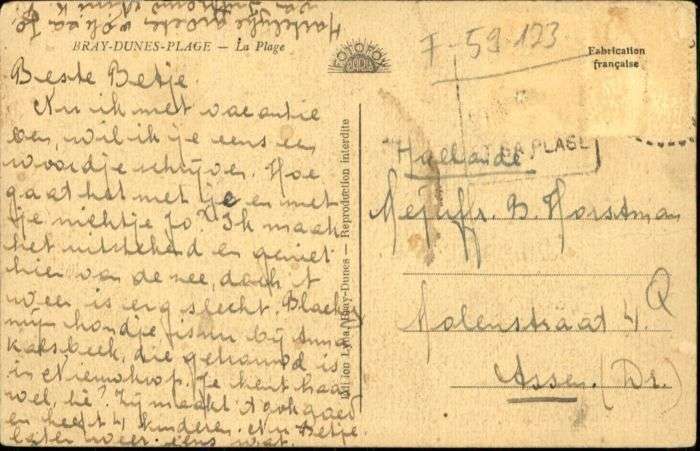 Hartelijke groeten ook van Jo
BRAY-DUNES-PLAGE — La Plage
FOTOFOX
F-59-123
Fabrication
française
Beste Betje
Nu ik met vacantie
ben, wil ik je eens een
woordje schrijven. Hoe
gaat het met je en met
je nichtje Jo? Ik maak
het uitstekend en geniet
hier van de zee, doch 't
weer is erg slecht. Blacky
mijn hondje is nu bij Anna
Kaesbeek, die getrouwd is
in Nieuwkoop. Je kent haar
wel, hè? Zij maakt 't ook goed
en heeft 4 kinderen. Nu Betje
later weer eens wat
Edition Lyna, Bray-Dunes — Reproduction interdite
PLAGE
Hollande
Mejuffr. B. Horstman
Molenstraat 4.
Assen. (Dr.)